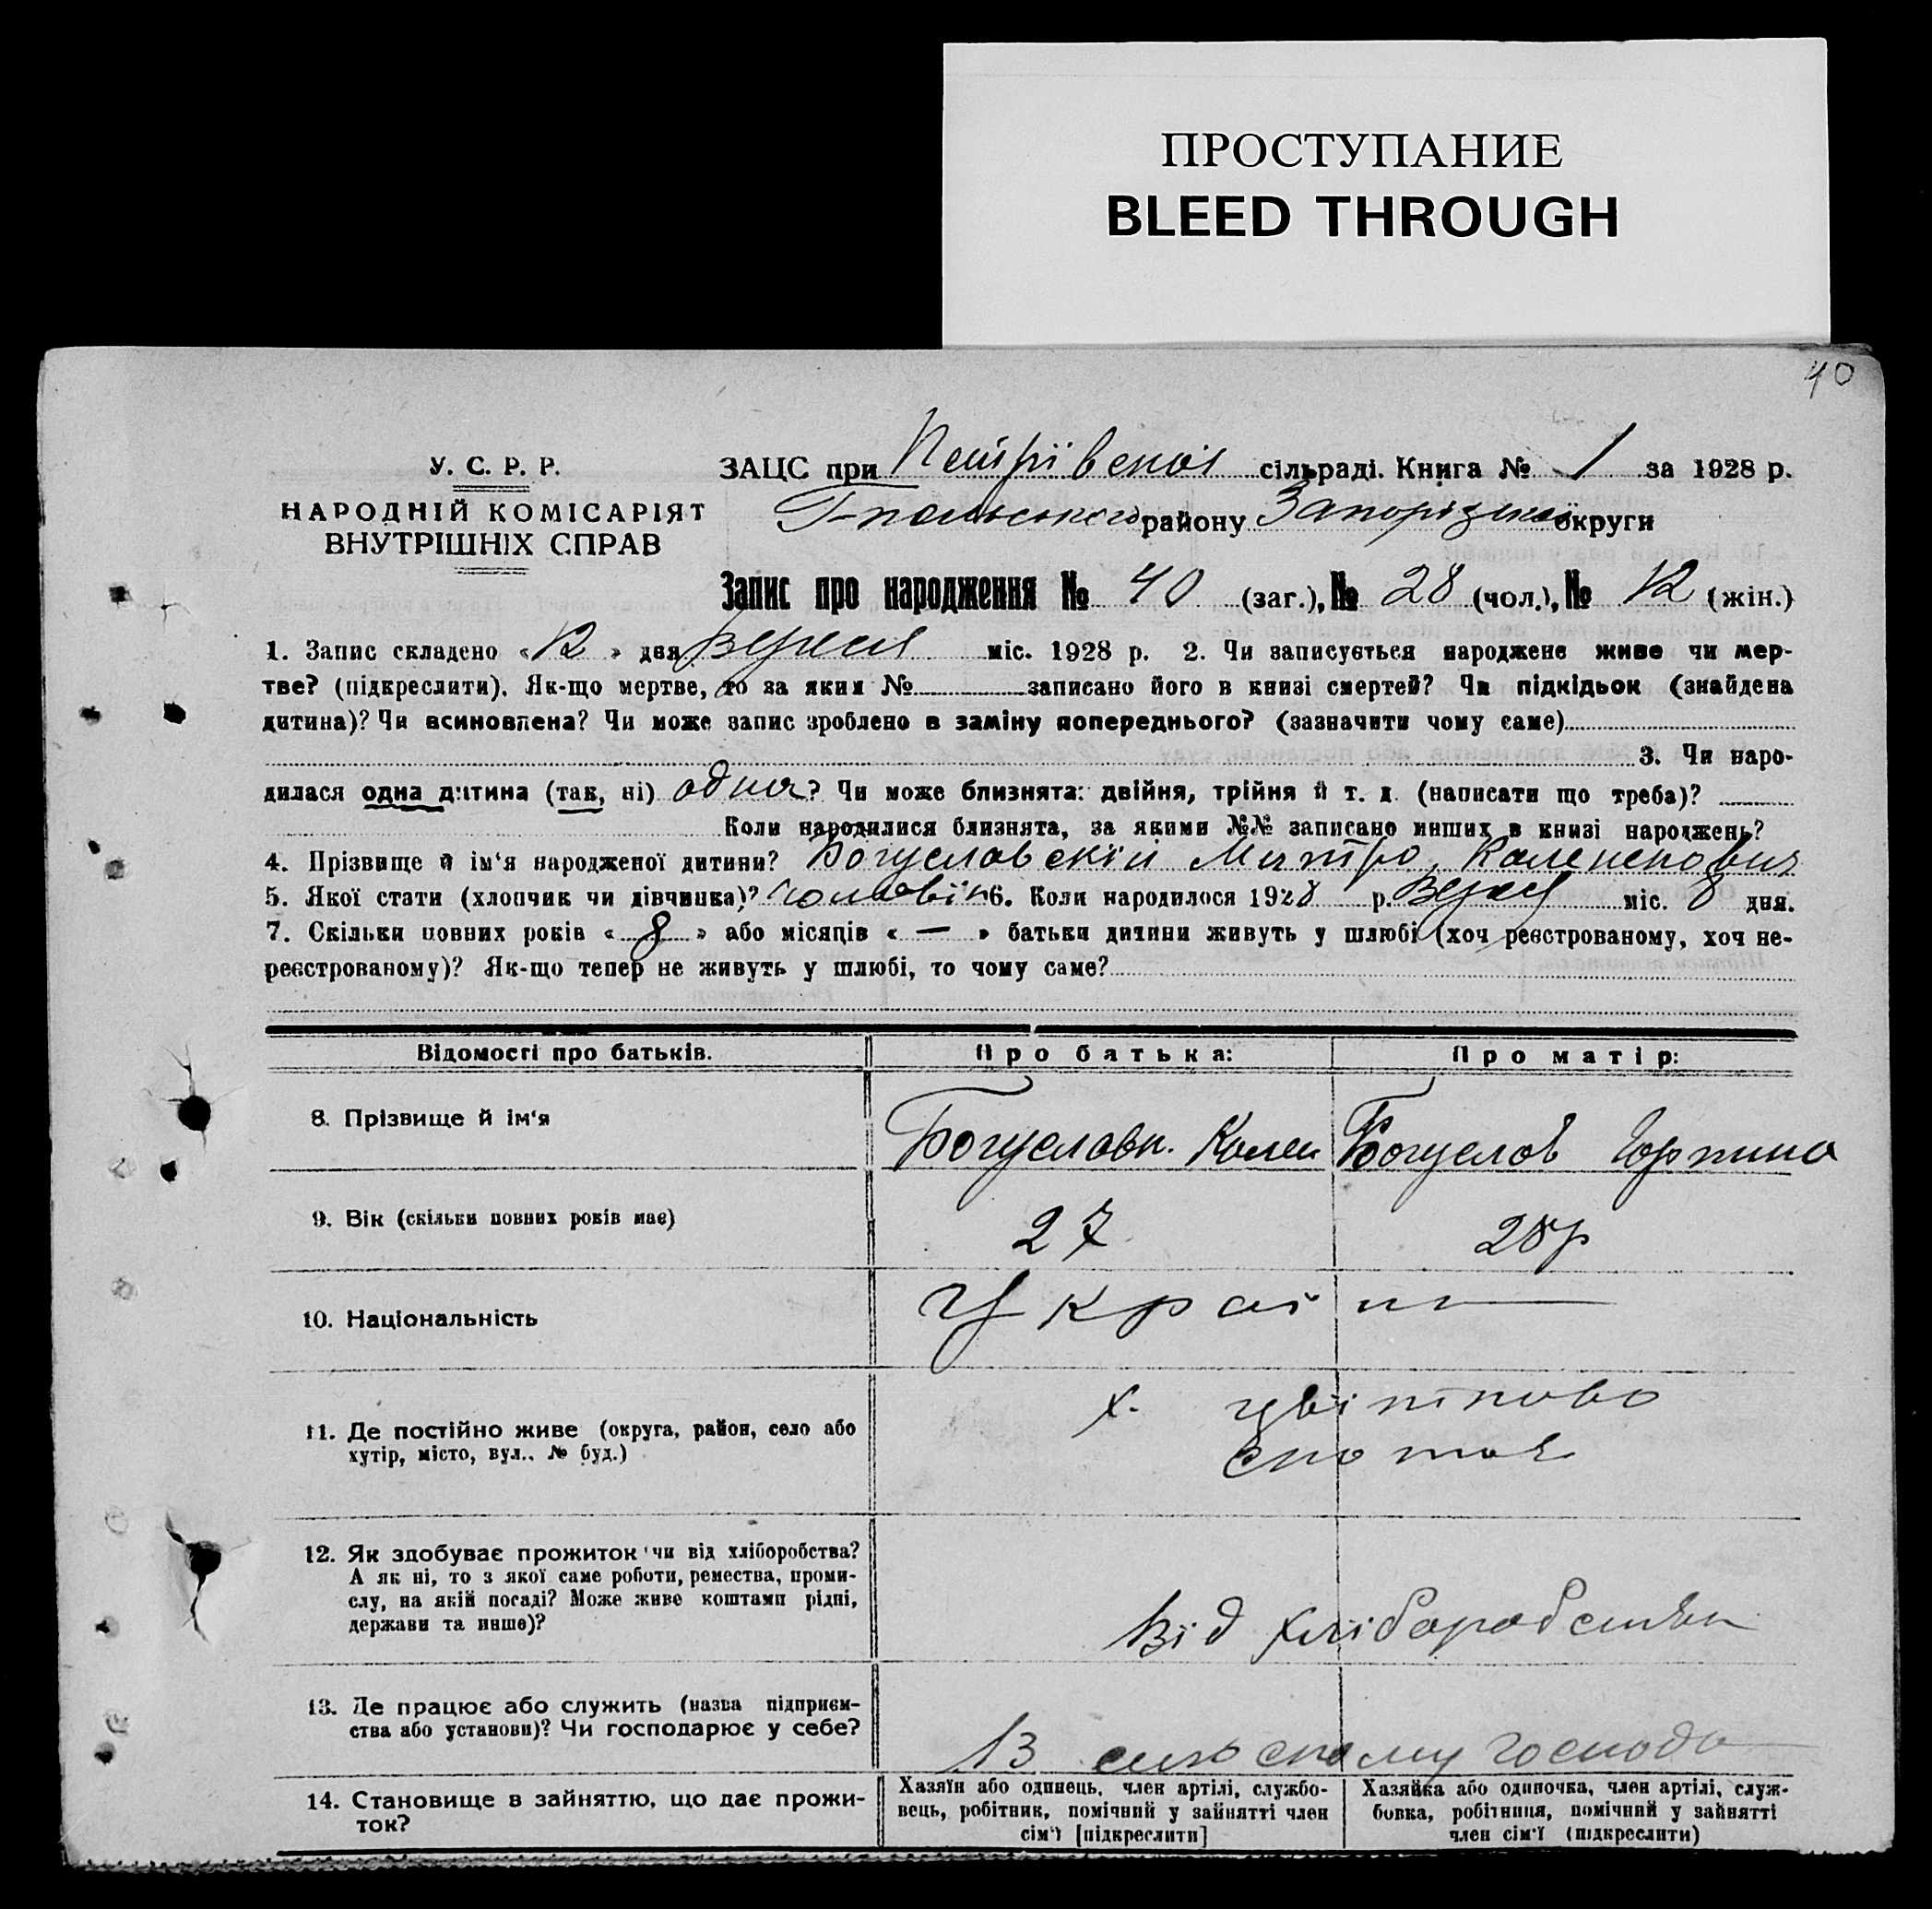 ПРОСТУПАНИЕ
BLEED THROUGH
40
У. С. Р. Р.
НАРОДНІЙ КОМІСАРІЯТ
ВНУТРІШНІХ СПРАВ
ЗАЦС при Петрівській сільраді. Книга № 1 за 1928 р.
Г-польського району Запорізької округи
Запис про народження № 40 (заг.), № 28 (чол.), № 12 (жін.)
1. Запис складено «12» дня Вересня міс. 1928 р. 2. Чи записується народжене живе чи мер-
тве? (підкреслити). Як-що мертве, то за яким № записано його в книзі смертей? Чи підкідьок (знайдена
дитина)? Чи всиновлена? Чи може запис зроблено в заміну попереднього? (зазначити чому саме)
3. Чи наро-
дилася одна дитина (так, ні) одна? Чи може близнята: двійня, трійня й т. д. (написати що треба)?
Коли народилися близнята, за якими №№ записано инших в книзі народжень?
4. Прізвище й ім'я народженої дитини? Богуславский Митро
5. Якої стати (хлопчик чи дівчинка)? чоловік 6. Коли народилося 1928 р. Вересня міс. 8 дня.
7. Скільки повних років «8» або місяців «—» батьки дитини живуть у шлюбі (хоч реєстрованому, хоч не-
реєстрованому)? Як-що тепер не живуть у шлюбі, то чому саме?
Відомості про батьків. Про батька: Про матір:
8. Прізвище й ім'я Богуславк. Калец Богуслов Горпина
9. Вік (скільки повних років має) 27 28р
10. Національність Україн
11. Де постійно живе (округа, район, село або
хутір, місто, вул., № буд.)
х. Цвіткове
12. Як здобуває прожиток чи від хліборобства?
А як ні, то з якої саме роботи, ремества, проми-
слу, на якій посаді? Може живе коштами рідні,
держави та инше)?
Від хліборобства
13. Де працює або служить (назва підприєм-
ства або установи)? Чи господарює у себе?
В сільскому господа
14. Становище в зайняттю, що дає прожи-
ток?
Хазяїн або одинець, член артілі, службо-
вець, робітник, помічний у зайнятті член
сім'ї [підкреслити]
Хазяйка або одиночка, член артілі, служ-
бовка, робітниця, помічний у зайнятті
член сім'ї (підкреслити)